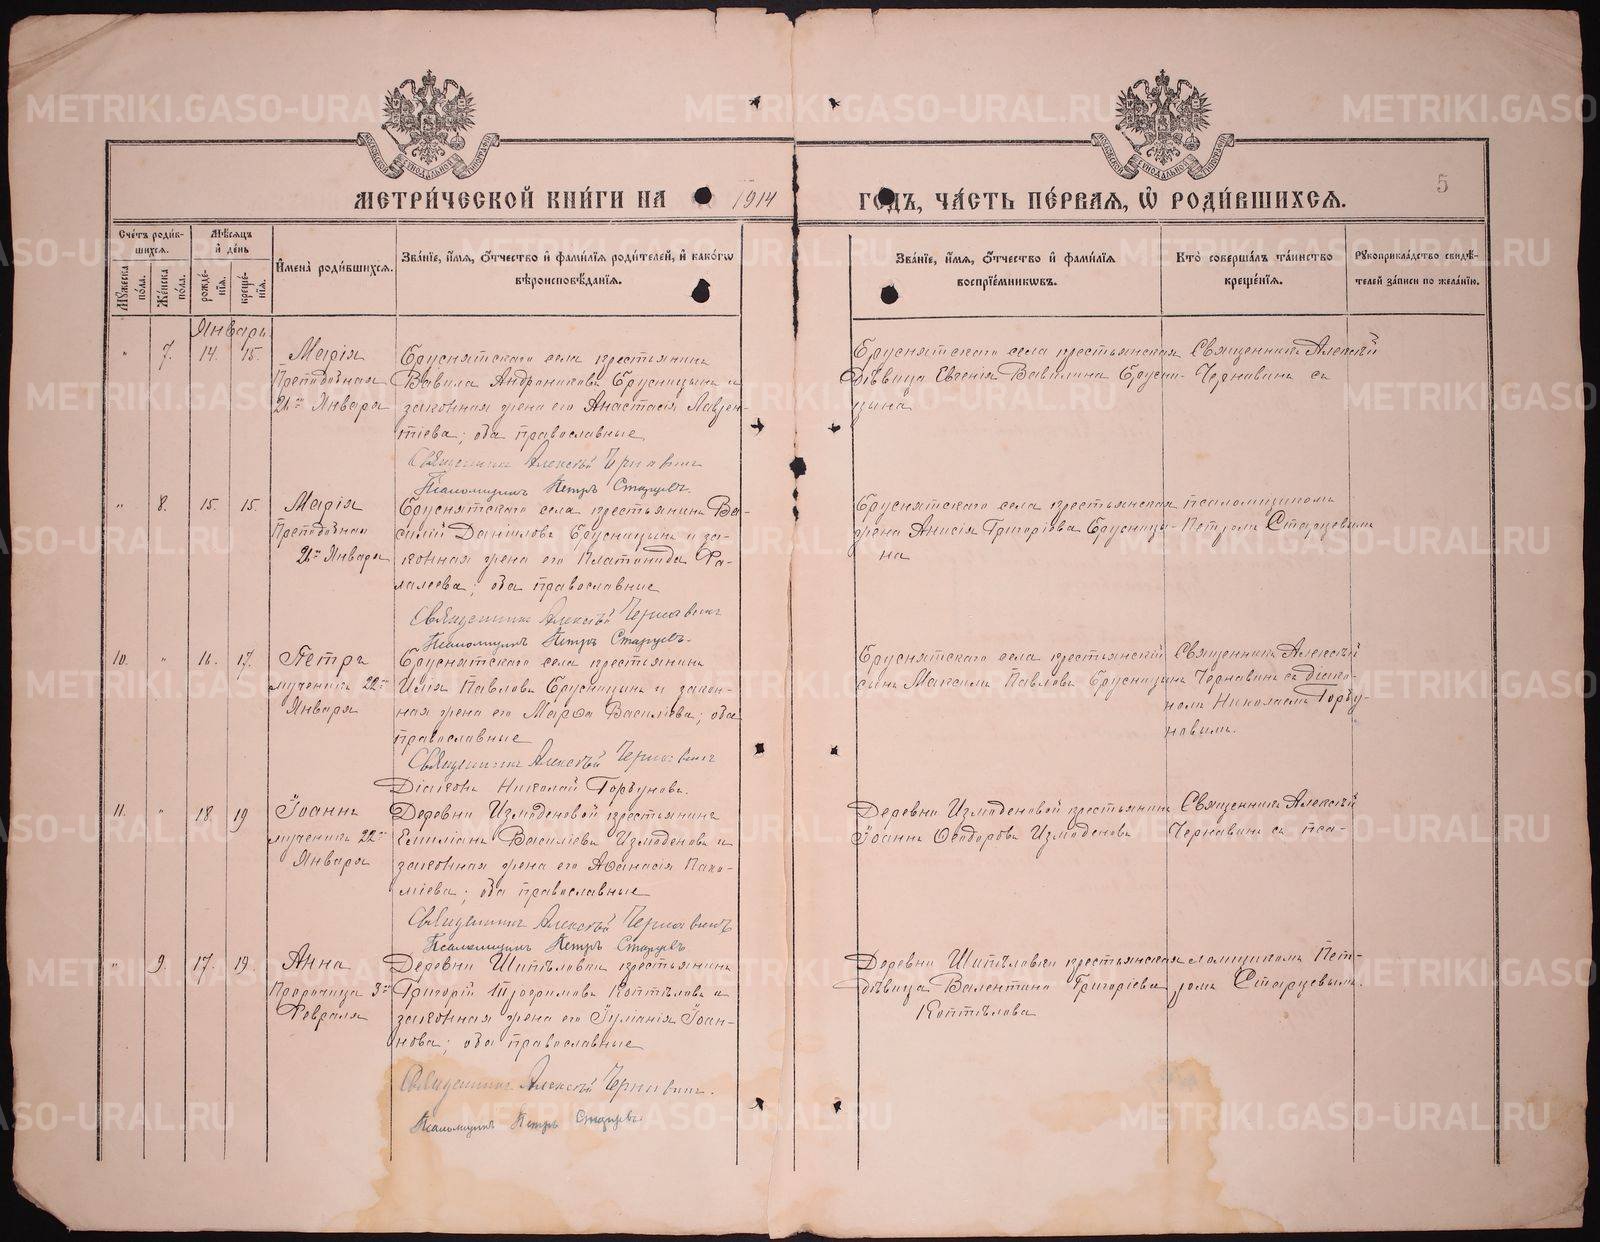 МЕТРИ́ЧЕСКОЙ КНИ́ГИ НА 1914 ГО́ДЪ, ЧА́СТЬ ПЕ́РВАЯ, Ѽ РОДИ́ВШИХСЯ.
5
Сче́тъ роди́в-
шихся.
Мѣ́сяцъ
и́ де́нь
Му́жеска по́ла.
Же́нска по́ла.
рожде́-
нїя.
креще́-
нїя.
И́мена̀ роди́вшихся.
Зва́нїе, и́мя, ѻ́тчество и́ фами́лїя роди́телей, и́ како́гѡ
вѣроисповѣ́данїя.
Зва́нїе, и́мя, ѻ́тчество и́ фами́лїя
воспрїе́мникѡвъ.
Кто̀ соверша́лъ та́инство
креще́нїя.
Рꙋкоприкла́дство свидѣ́-
телей за́писи по жела́нїю.
Январь
" 7. 14. 15. Марія
Преподобная
26го Января
Бруснятскаго села крестьянинъ
Вавила Андрониковъ Брусницынъ и
законная жена его Анастасія Лаврен-
тіева; оба православные
Священникъ Алексѣй Чернавинъ
Псаломщикъ Петръ Старцевъ.
Бруснятскаго села крестьянская
дѣвица Евгенія Вавилина Брусни-
цына
Священникъ Алексѣй
Чернавинъ съ
" 8. 15. 15. Марія
Преподобная
26го Января
Бруснятскаго села крестьянинъ Ва-
силій Даніиловъ Брусницынъ и за-
конная жена его Платонида Фа-
лалеева; оба православные
Священникъ Алексѣй Чернавинъ
Псаломщикъ Петръ Старцевъ.
Бруснятскаго села крестьянская
жена Анисія Григоріева Брусницы-
на
псаломщикомъ
Петромъ Старцевымъ
10. " 16. 17. Петръ
мученикъ 22го
Января
Бруснятскаго села крестьянинъ
Илія Павловъ Брусницынъ и закон-
ная жена его Марѳа Василіева; оба
православные
Священникъ Алексѣй Чернавинъ
Діаконъ Николай Горбуновъ.
Бруснятскаго села крестьянскій
сынъ Максимъ Павловъ Брусницынъ
Священникъ Алексѣй
Чернавинъ съ діако-
номъ Николаемъ Горбу-
новымъ.
11. " 18. 19 Іоаннъ
мученикъ 22го
Января
Деревни Измоденовой крестьянинъ
Емиліанъ Василіевъ Измоденовъ и
законная жена его Аѳанасія Пахо-
міева; оба православные
Священникъ Алексѣй Чернавинъ
Псаломщикъ Петръ Старцевъ
Деревни Измоденовой крестьянинъ
Іоаннъ Ѳеодоровъ Измоденовъ
Священникъ Алексѣй
Чернавинъ съ пса-
" 9. 17. 19. Анна
Пророчица 3го
Февраля
Деревни Шипѣловки крестьянинъ
Григорій Трофимовъ Коптѣловъ и
законная жена его Іуліанія Іоан-
нова; оба православные
Священникъ Алексѣй Чернавинъ.
Псаломщикъ Петръ Старцевъ.
Деревни Шипѣловки крестьянская
дѣвица Валентина Григоріева
Коптѣлова
ломщикомъ Пет-
ромъ Старцевымъ.
METRIKI.GASO-URAL.RU